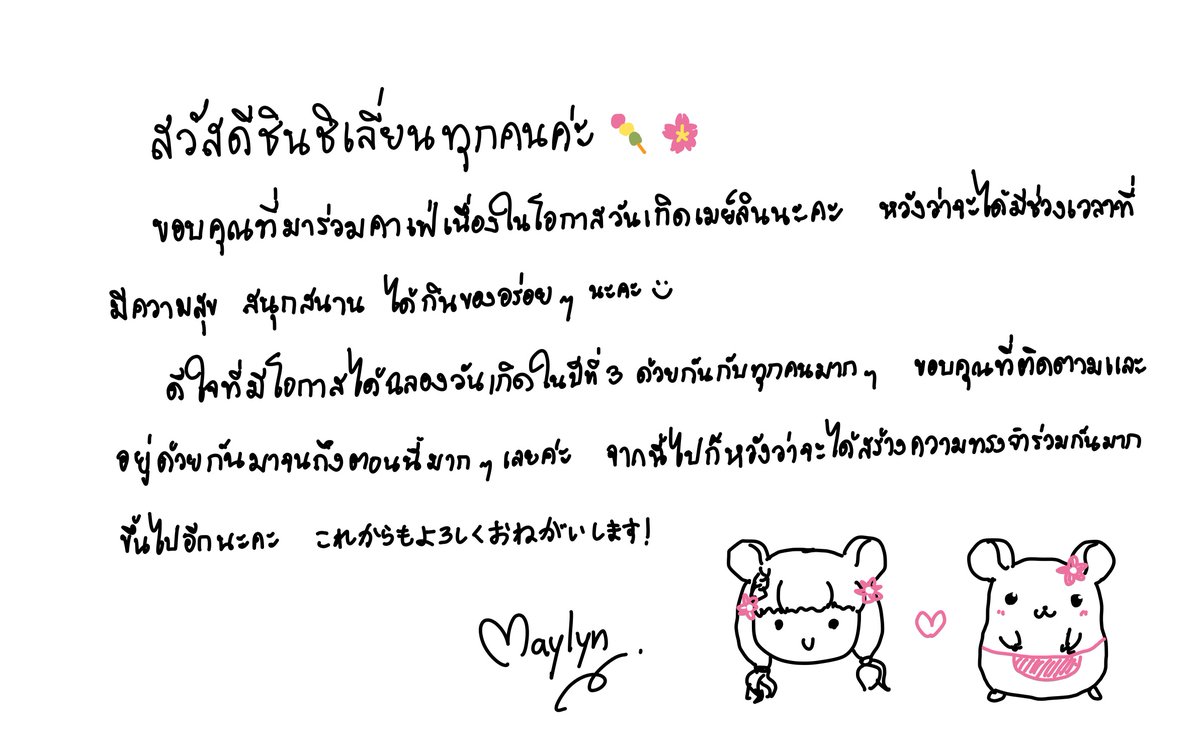 สวัสดีชินชิเลี่ยนทุกคนค่ะ 🍡 🌸
ขอบคุณที่มาร่วมคาเฟ่เนื่องในโอกาสวันเกิดเมย์ลินนะคะ หวังว่าจะได้มีช่วงเวลาที่
มีความสุข สนุกสนาน ได้กินของอร่อยๆ นะคะ
ดีใจที่มีโอกาสได้ฉลองวันเกิดในปีที่ 3 ด้วยกันกับทุกคนมากๆ ขอบคุณที่ติดตามและ
อยู่ด้วยกันมาจนถึงตอนนี้มากๆ เลยค่ะ จากนี้ไปก็หวังว่าจะได้สร้างความทรงจำร่วมกันมาก
ขึ้นไปอีกนะคะ これからもよろしくおねがいします!
Maylyn.